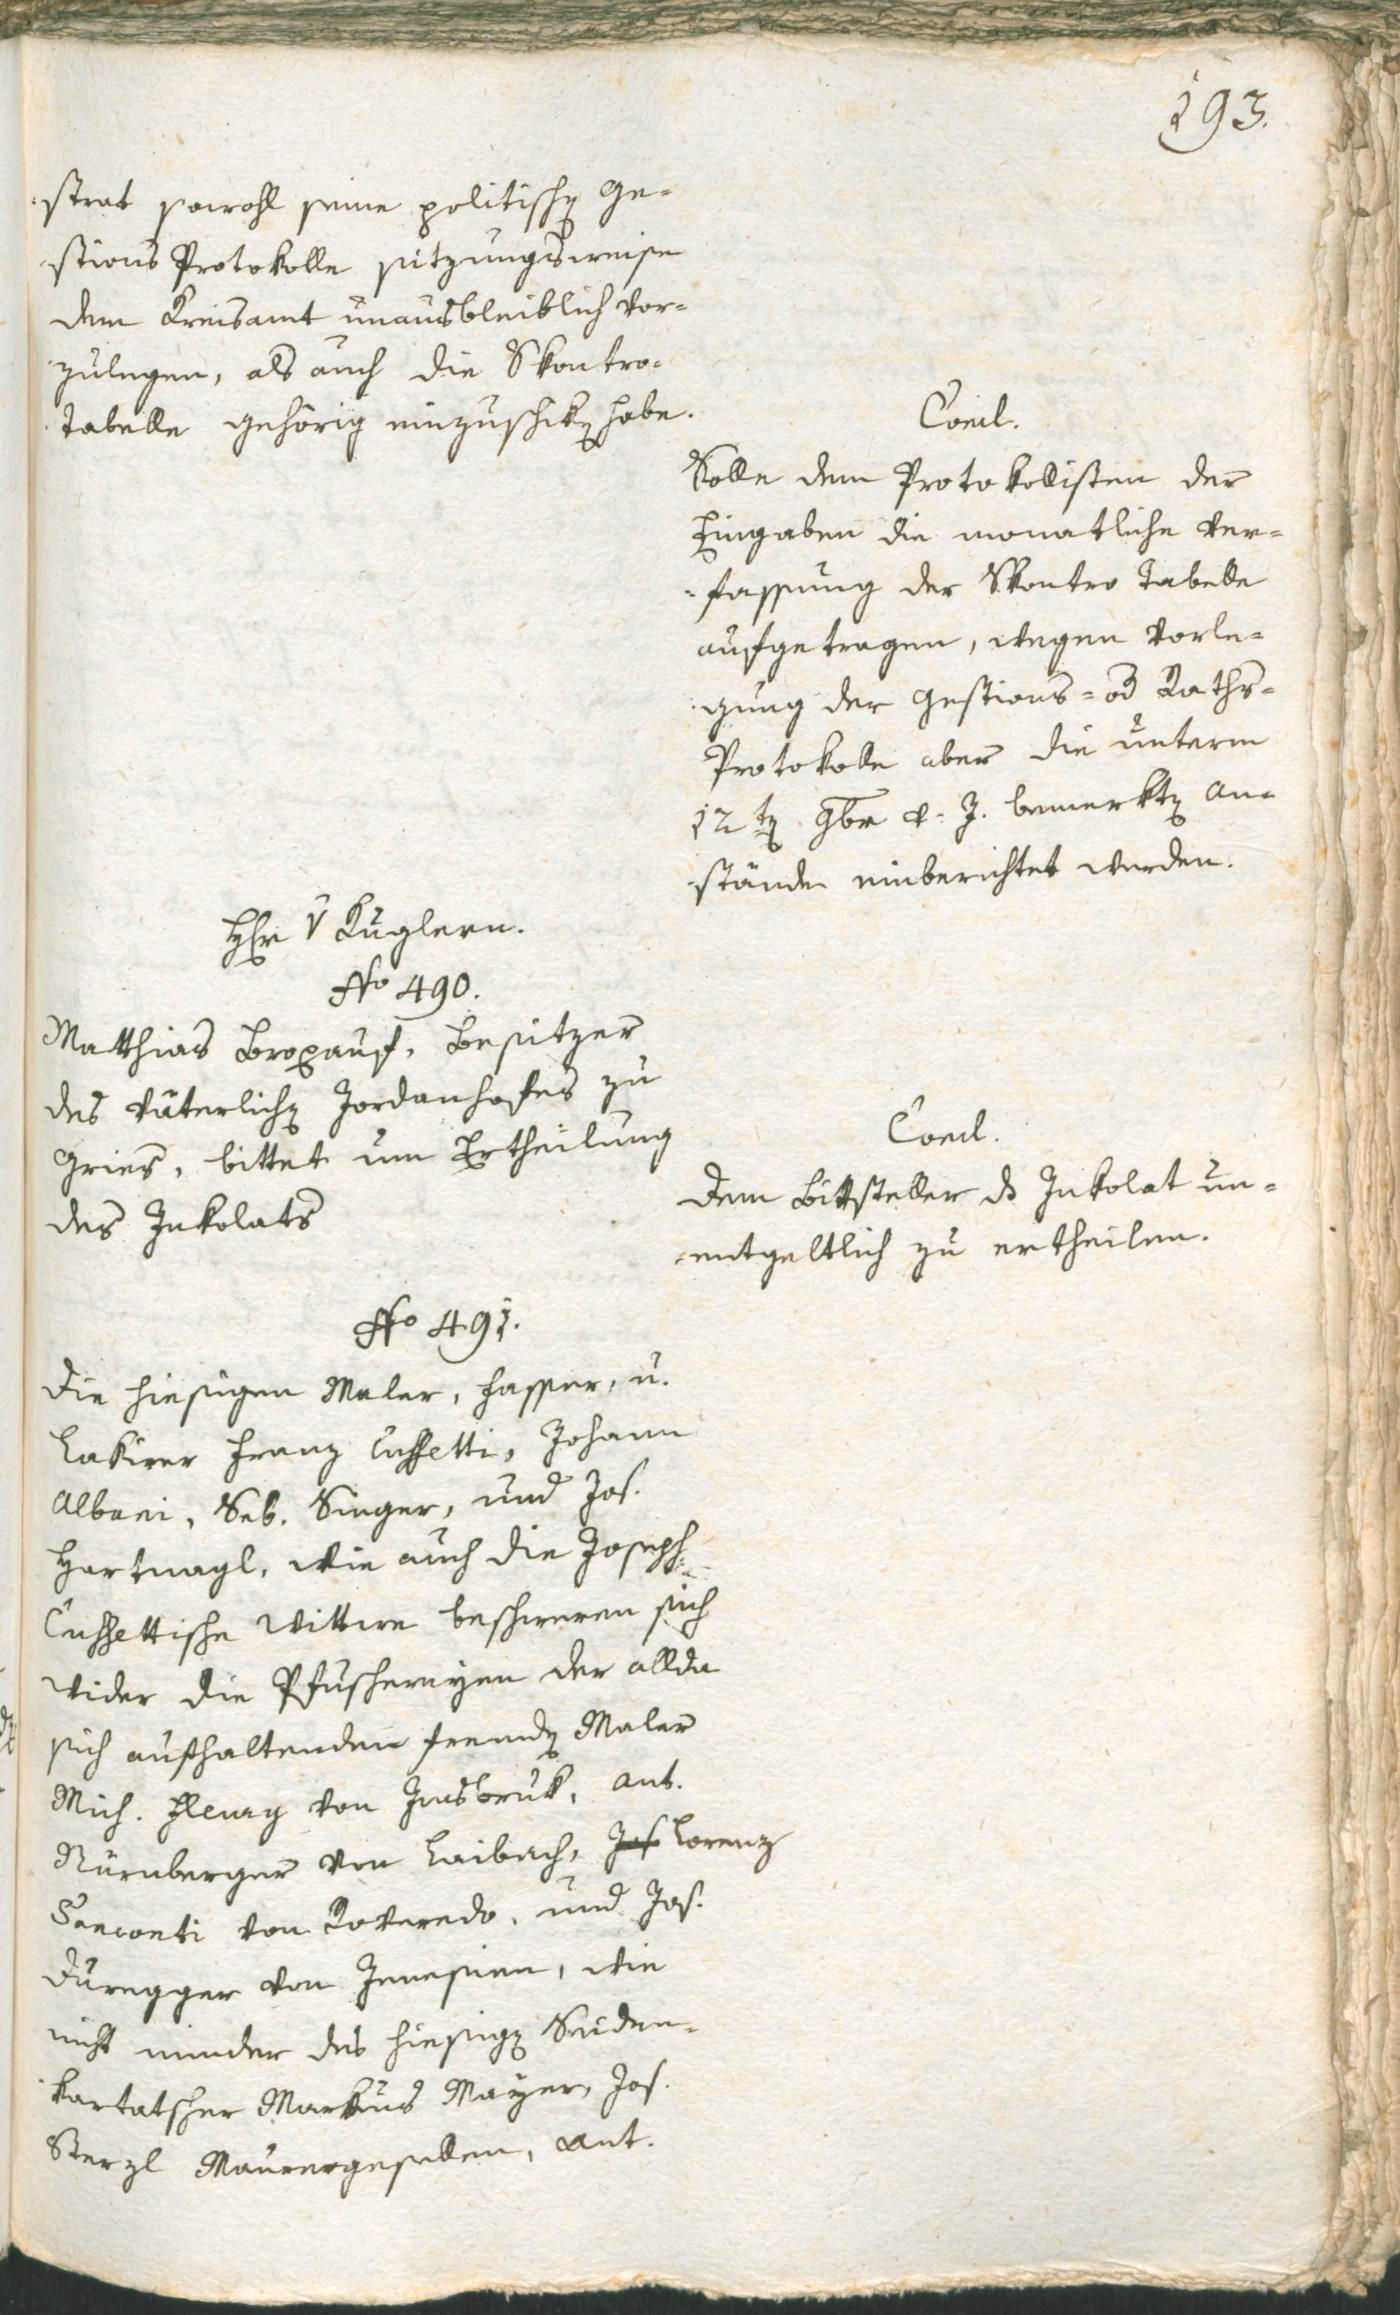 193.
strat sowohl seine politischen Ge-
stions Protokolle sitzungsweise
dem Kreisamt unausbleiblich vor-
zulegen, als auch die Skontro-
Tabelle gehörig einzuschiken habe.
Concl.
Solle dem Protokollisten der
Eingaben die monatliche Ver-
fassung der Skontro Tabelle
aufgetragen, wegen Vorle-
gung der Gestions- od Raths-
Protokolle aber die unterm
12ten 9br v. J. bemerkten An-
stände einberichtet werden.
Hhr v Kuglern.
No 490.
Matthias Broxauf, Besitzer
des väterlichen Jordanhofes zu
Gries, bittet um Ertheilung
des Inkolats
Concl.
Dem Bittsteller ds Inkolat un-
entgeltlich zu ertheilen.
No 491.
Die hiesigen Maler, Fasser, u.
Lakirer Franz Cussetti, Johann
Albani, Seb. Singer, und Jos.
Hartnagl, wie auch die Joseph
Cussettische Wittwe beschweren sich
wider die Pfuschereyen der allda
sich aufhaltenden fremden Maler
Mich. von Insbruk, Ant.
Nürnberger von Laibach, Jos Lorenz
Sanconti von Roveredo, und Jos.
Duregger von Jenesien, wie
nicht minder des hiesigen Seiden-
kartatscher Markus Mayer, Jos.
Sterzl Maurergesellen, Ant.